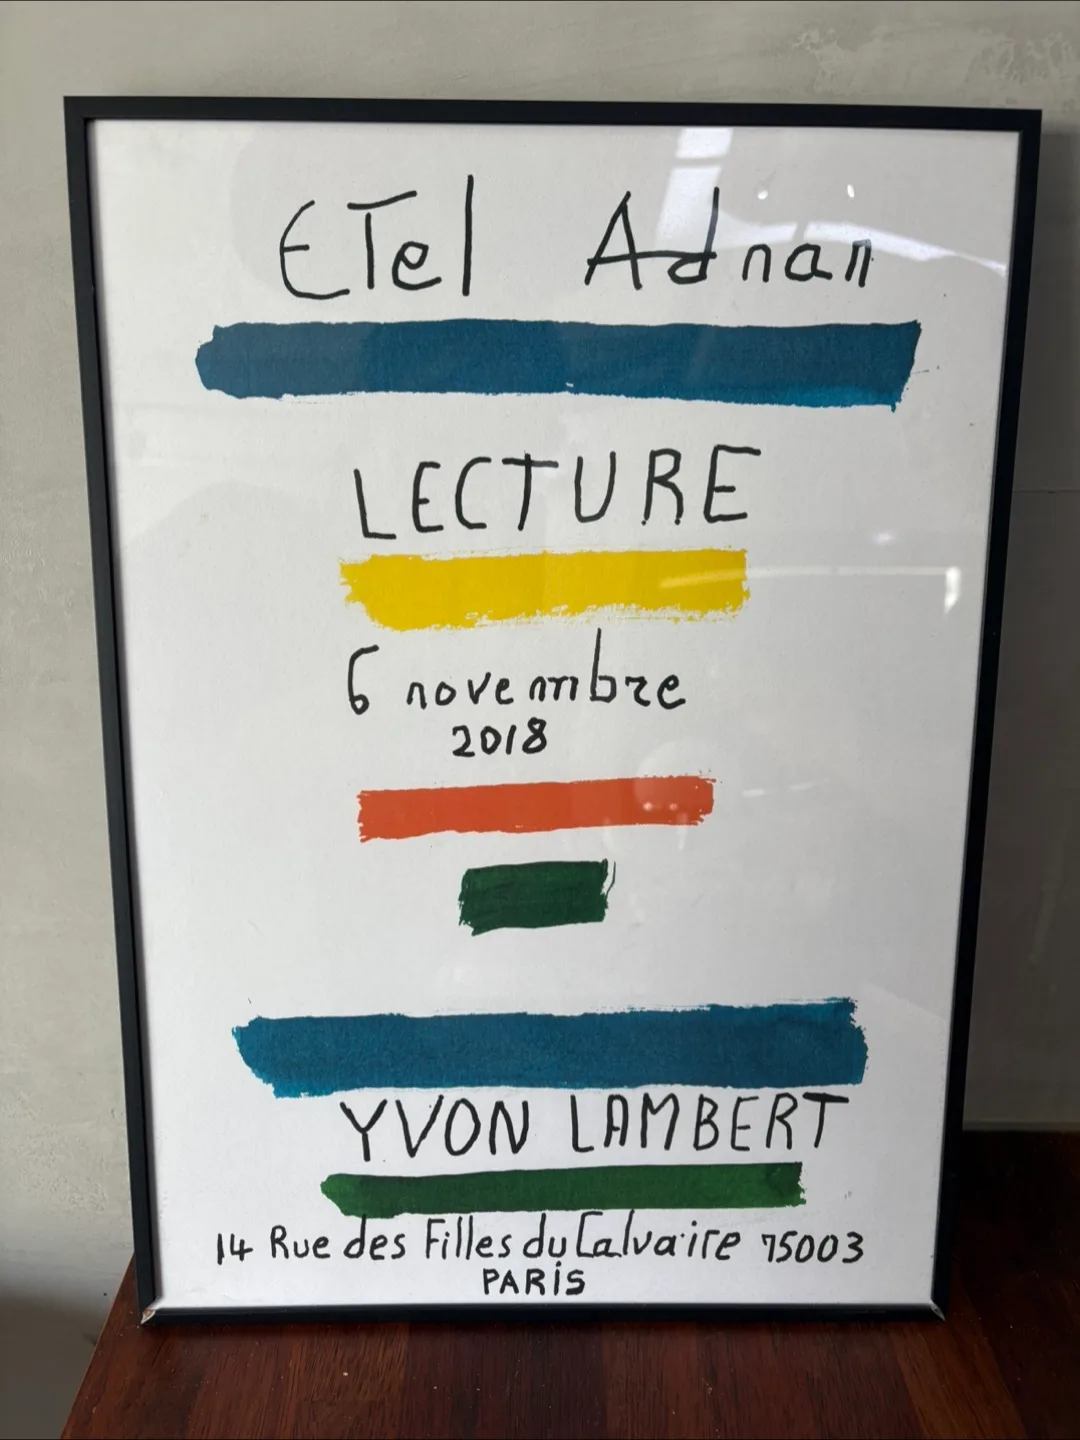 ETel Adnan
LECTURE
6 novembre
2018
YVON LAMBERT
14 Rue des Filles du Calvaire 75003
PARIS